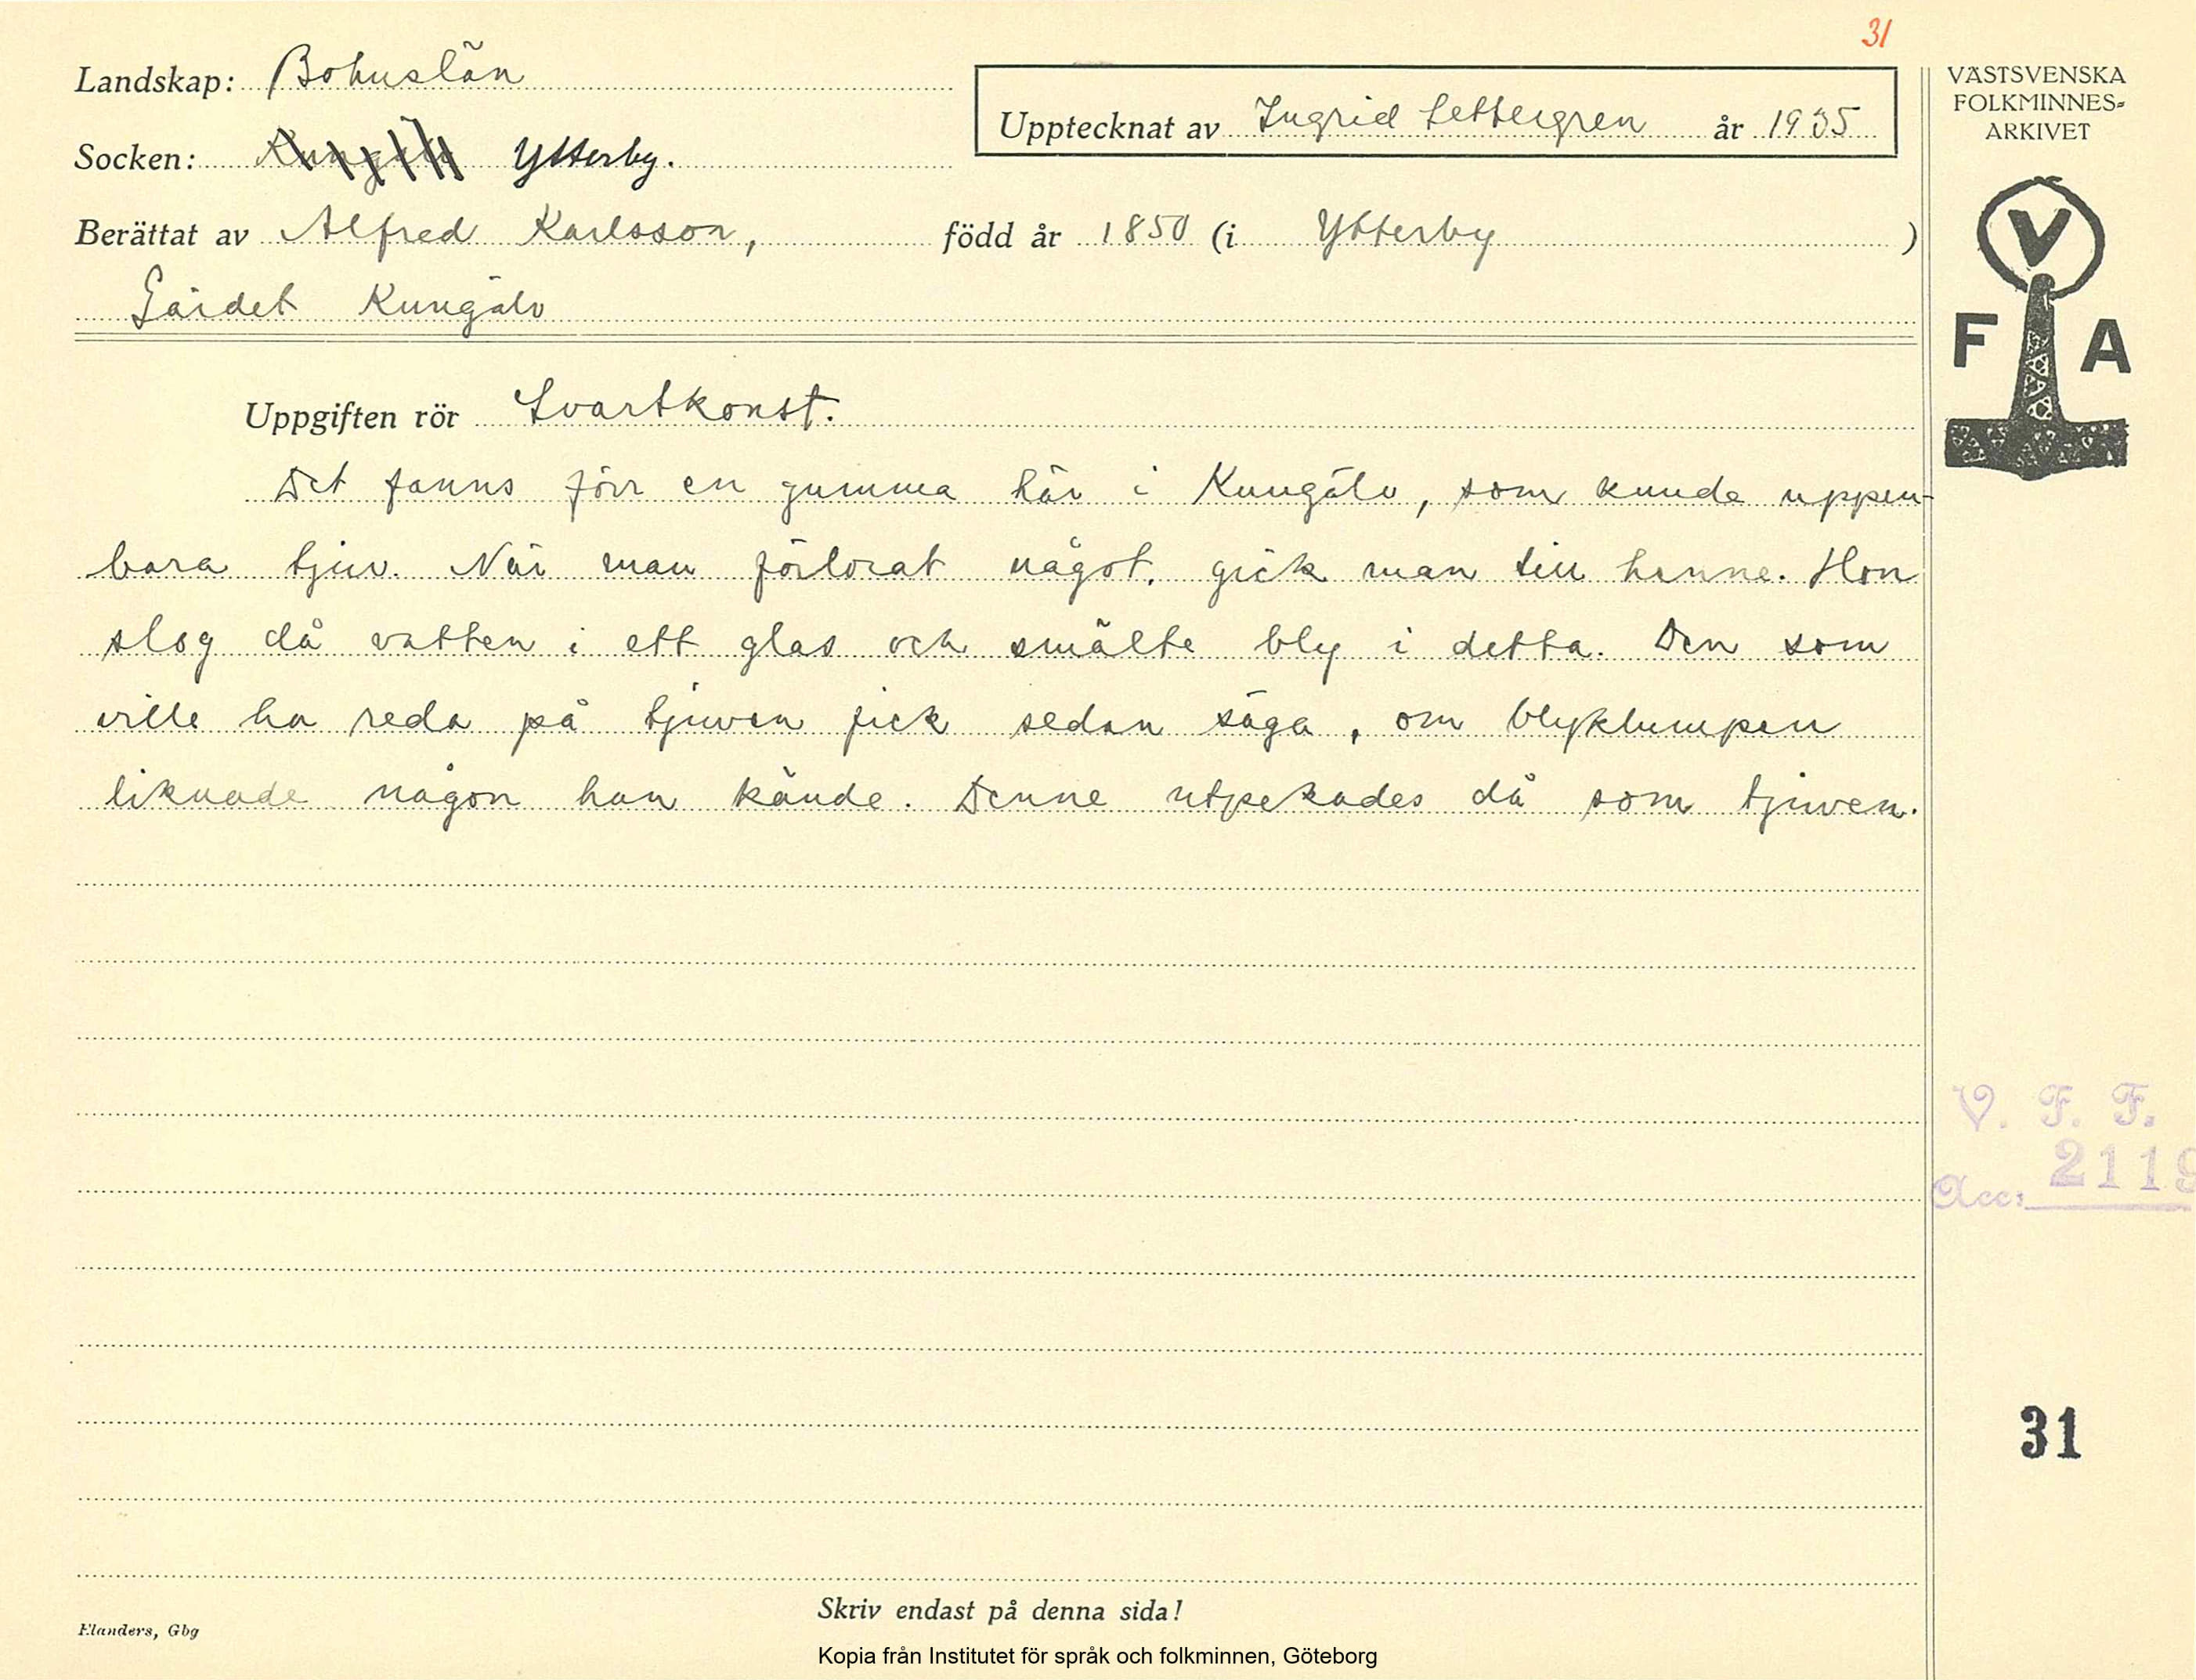 31
Landskap: Bohuslän
Upptecknat av Ingrid Settergren år 1935
VÄSTSVENSKA
FOLKMINNES-
ARKIVET
Socken: Kungälv Ytterby.
Berättat av Alfred Karlsson, född år 1850 (i Ytterby )
Gärdet Kungälv
V
F A
Uppgiften rör Svartkonst.
Det fanns förr en gumma här i Kungälv, som kunde uppen-
bara tjuv. När man förlorat något, gick man till henne. Hon
slog då vatten i ett glas och smälte bly i detta. Den som
ville ha reda på tjuven fick sedan säga, om blyklumpen
liknade någon han kände. Denne utpekades då som tjuven.
V. F. F.
Acc: 2119
31
Skriv endast på denna sida!
Elanders, Gbg
Kopia från Institutet för språk och folkminnen, Göteborg